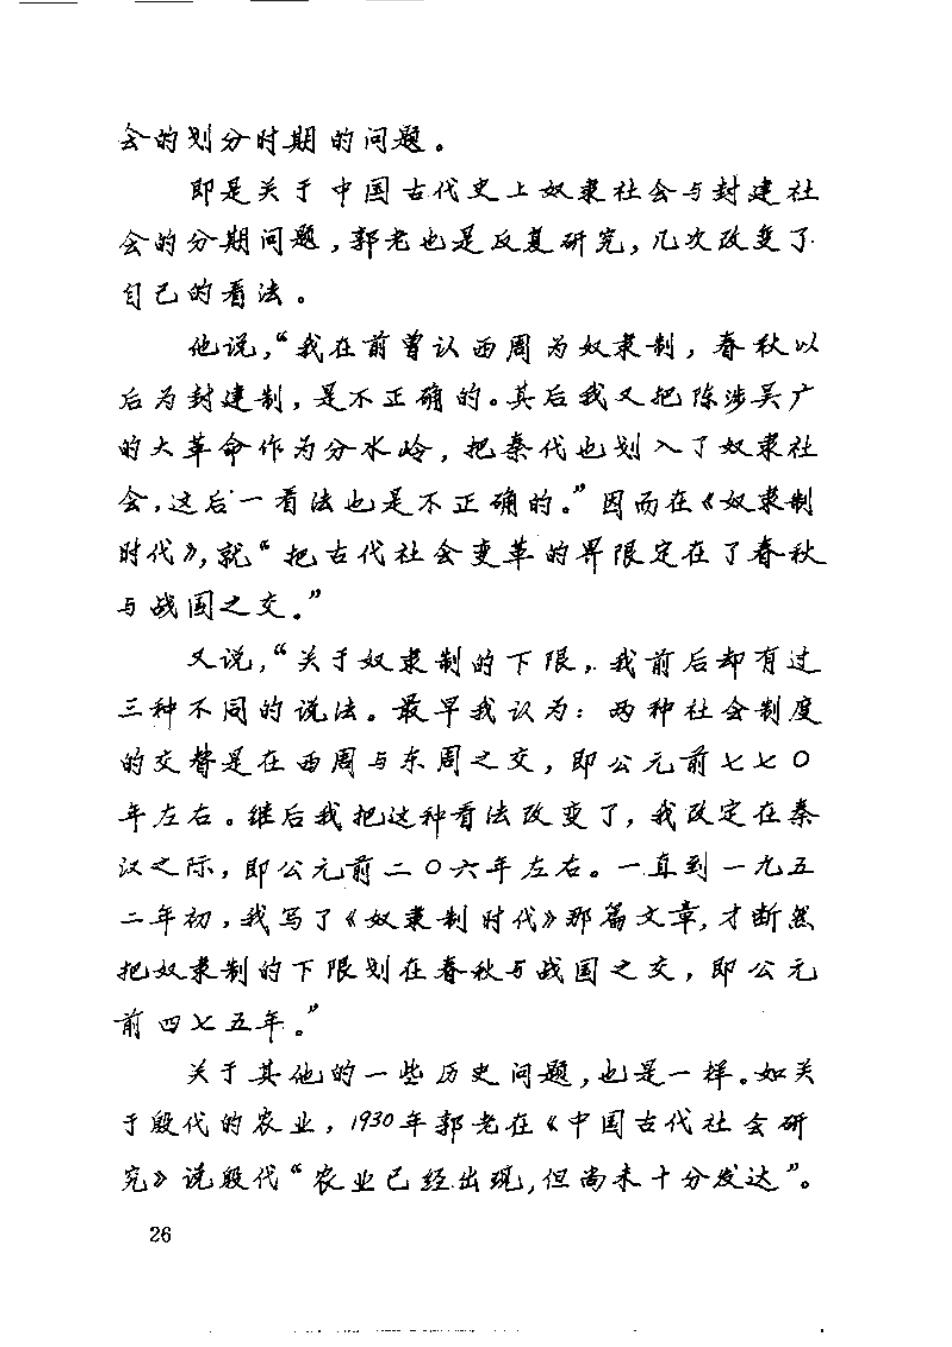 会的划分时期的问题。
即是关于中国古代史上奴隶社会与封建社
会的分期问题，郭老也是反复研究，几次改变了
自己的看法。
他说，“我在前曾认西周为奴隶制，春秋以
后为封建制，是不正确的。其后我又把陈涉吴广
的大革命作为分水岭，把秦代也划入了奴隶社
会，这后一看法也是不正确的。”因而在《奴隶制
时代》，就“把古代社会变革的界限定在了春秋
与战国之交。”
又说，“关于奴隶制的下限，我前后却有过
三种不同的说法。最早我认为：两种社会制度
的交替是在西周与东周之交，即公元前七七〇
年左右。继后我把这种看法改变了，我改定在秦
汉之际，即公元前二〇六年左右。一直到一九五
二年初，我写了《奴隶制时代》那篇文章，才断然
把奴隶制的下限划在春秋与战国之交，即公元
前四七五年。”
关于其他的一些历史问题，也是一样。如关
于殷代的农业，1930年郭老在《中国古代社会研
究》说殷代“农业已经出现，但尚未十分发达”。
26